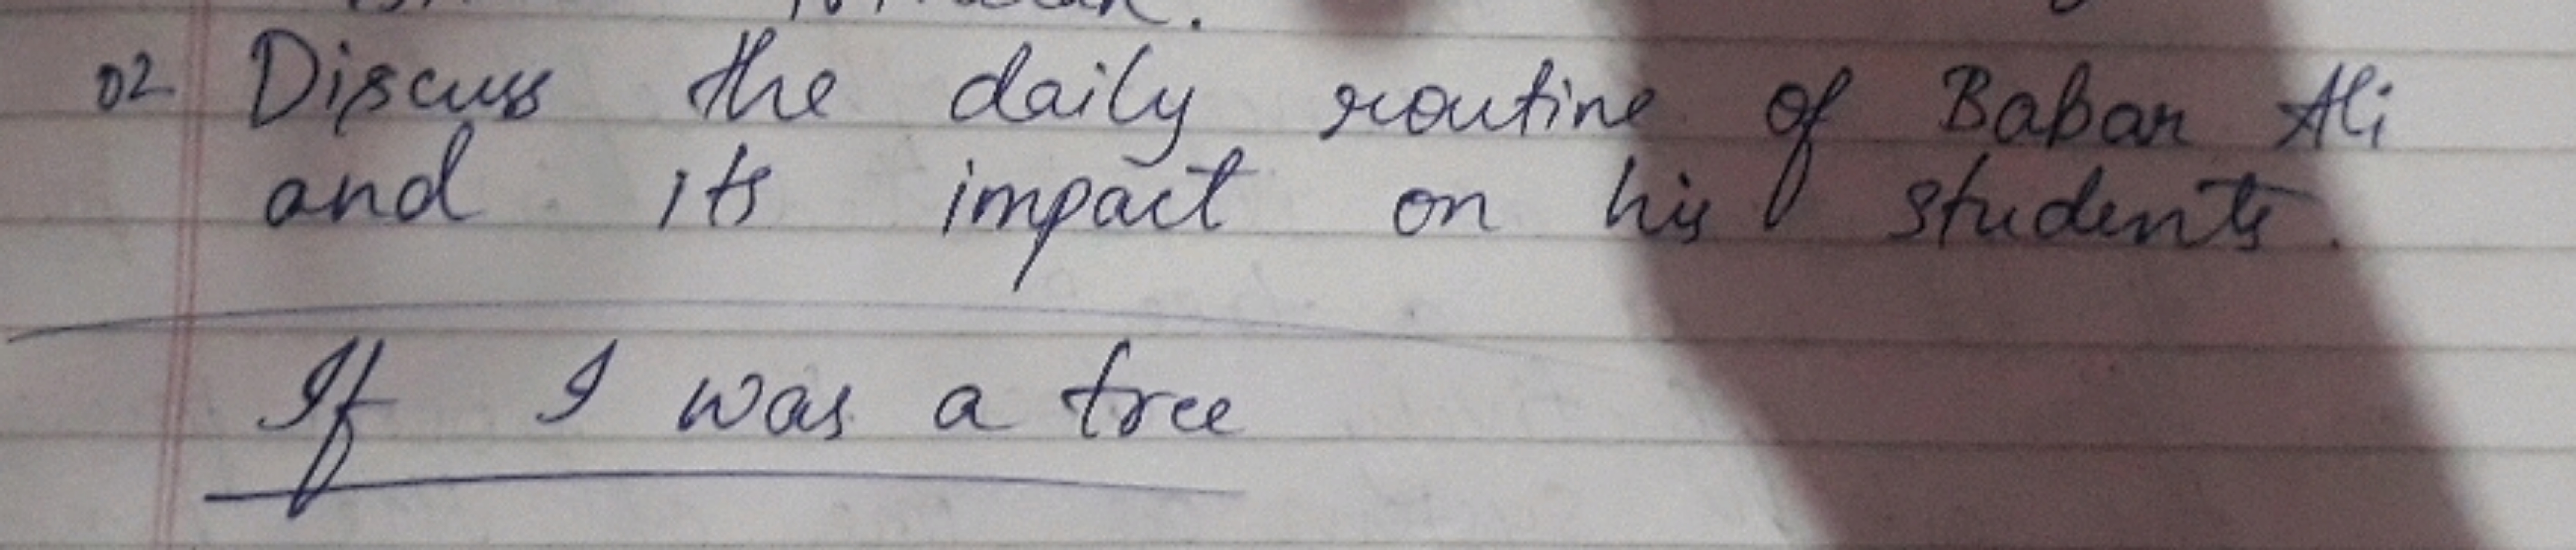 02 Discuss the daily routine of Babar Ali
and its impact on his students.
If I was a tree